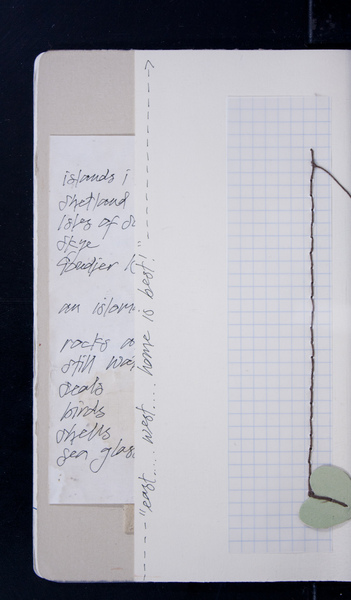 islands i
Shetland
Isles of S
Skye
an islan
rocks a
still wat
seals
birds
shells
sea glas
"east.... west.... home is best!"